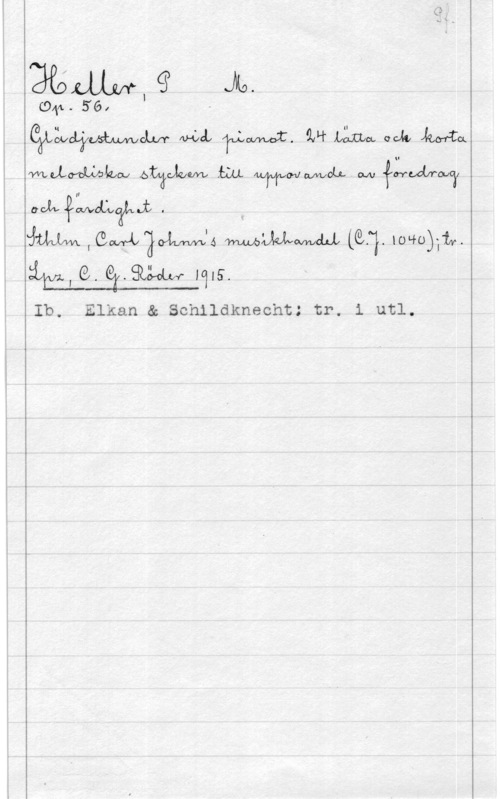 Heller, P M.
Op. 56.
Glädjestunder vid pianot. 24 lätta och korta
melodiska stycken till uppövande av föredrag
och färdighet.
Sthlm, Carl Johnn's musikhandel (C.J. 1040); tr.
Lpz, C. G. Röder 1915.
Ib. Elkan & Schildknecht; tr. i utl.